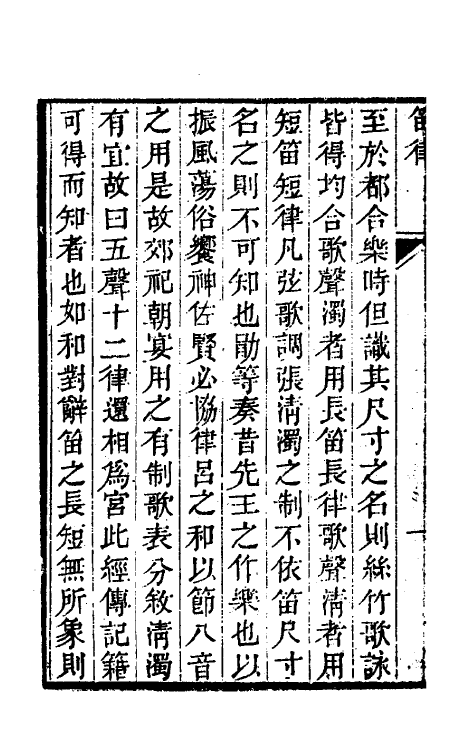 笛律
至於都合樂時但識其尺寸之名則絲竹歌詠
皆得均合歌聲濁者用長笛長律歌聲淸者用
短笛短律凡弦歌調張淸濁之制不依笛尺寸
名之則不可知也勖等奏昔先王之作樂也以
振風蕩俗饗神佐賢必協律呂之和以節八音
之用是故郊祀朝宴用之有制歌表分敘淸濁
有宜故曰五聲十二律還相爲宮此經傳記籍
可得而知者也如和對辭笛之長短無所象則